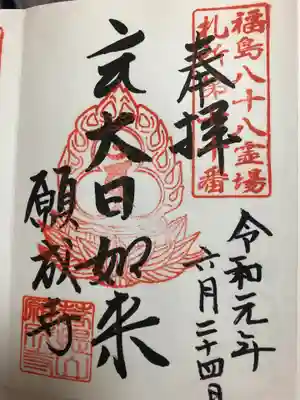 福島八十八霊場
札所第 番
奉拝
令和元年
六月二十四日
大日如来
願成寺